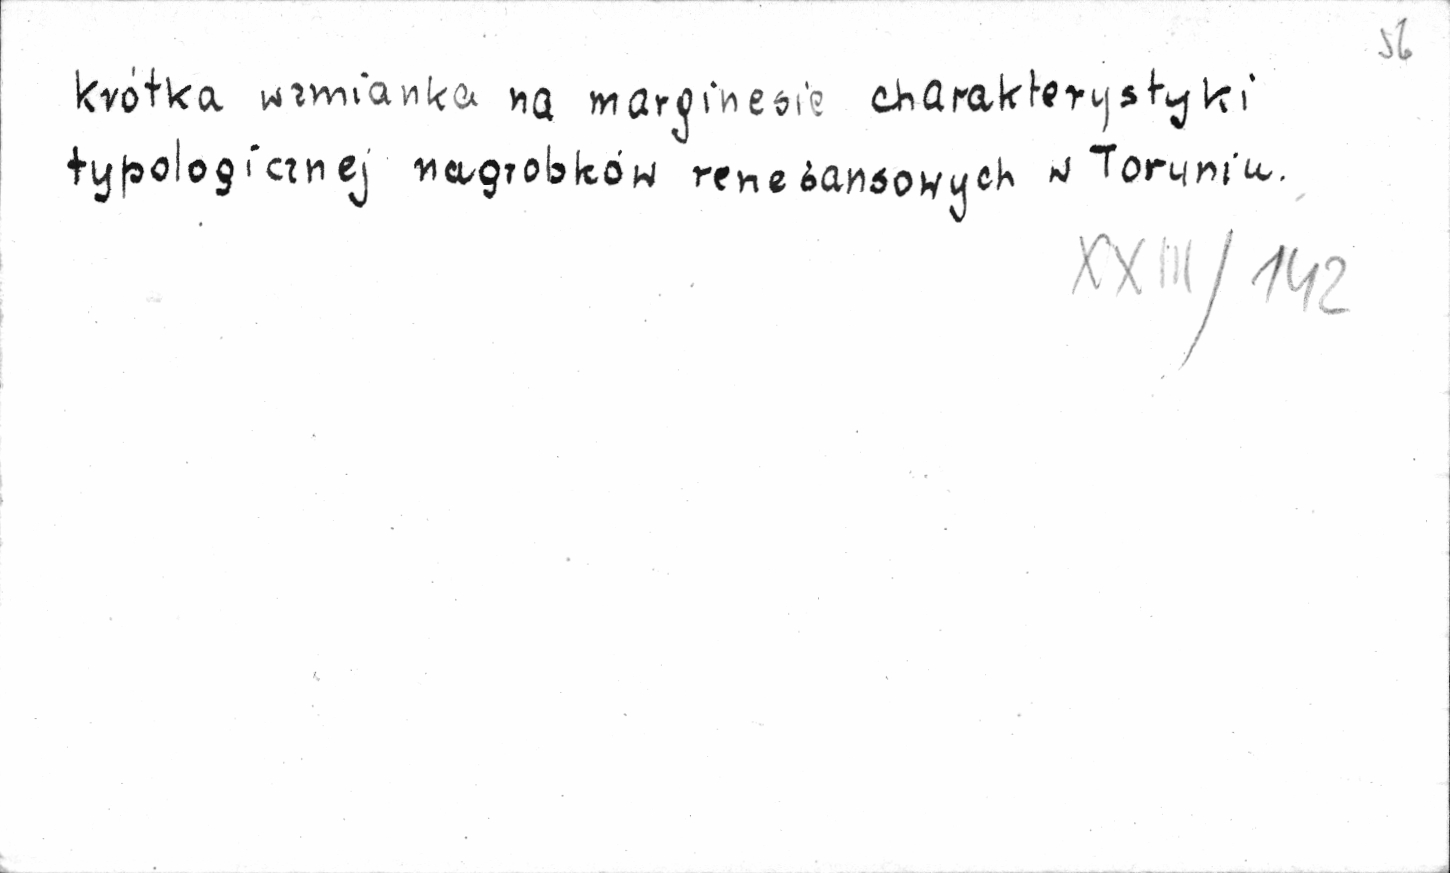 56
krótka wzmianka na marginesie charakterystyki
typologicznej nagrobków renesansowych w Toruniu.
XXIII/142